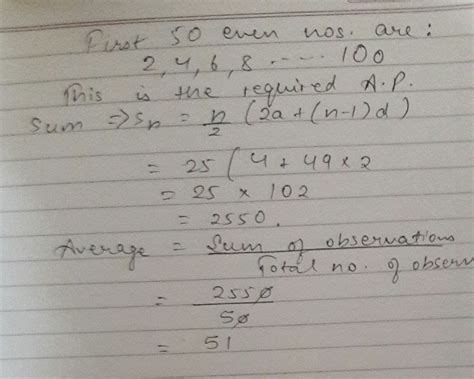 First 50 even nos. are :
2, 4, 6, 8 ..... 100
This is the required A.P.
Sum ⇒ Sn = n/2 (2a + (n-1) d)
= 25 ( 4 + 49 × 2
= 25 × 102
= 2550.
Average = Sum of observations
Total no. of observ
= 2550
50
= 51